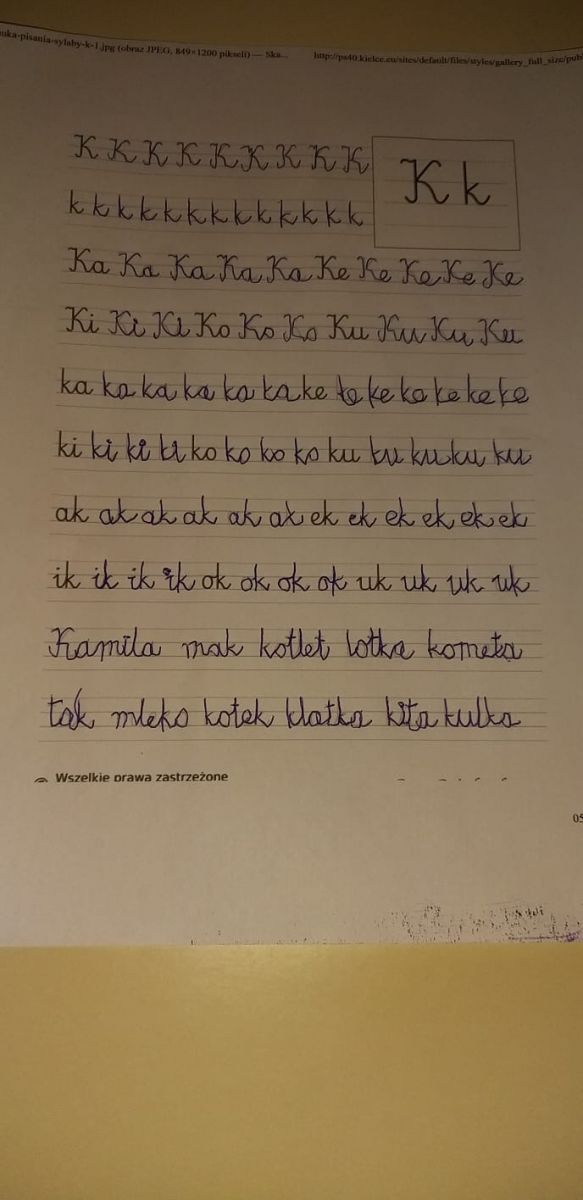 uka-pisania-sylaby-k-1.jpg (obraz JPEG, 849×1200 pikseli) — Ska... http://ps40.kielce.eu/sites/default/files/styles/gallery_full_size/publ
K K K K K K K K K
K k
k k k k k k k k k k k k k
Ka Ka Ka Ka Ka Ke Ke Ke Ke Ke
Ki Ki Ki Ko Ko Ko Ku Ku Ku Ku
ka ka ka ka ka ka ke ke ke ke ke ke ke
ki ki ki ki ko ko ko ko ku ku ku ku ku
ak ak ak ak ak ak ek ek ek ek ek ek
ik ik ik ik ok ok ok ok uk uk uk uk
Kamila mak kotlet lotka kometa
tak mleko kotek klatka kita kulka
Wszelkie prawa zastrzeżone
05